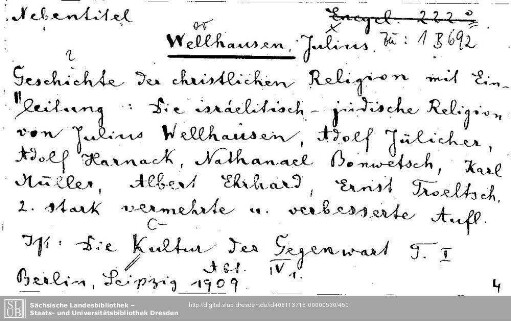 Nebentitel
Encycl. 222
Wellhausen, Julius. Zu: 1 B 692
Geschichte der christlichen Religion mit Ein-
leitung: Die israelitisch-jüdische Religion
von Julius Wellhausen, Adolf Jülicher,
Adolf Harnack, Nathanael Bonwetsch, Karl
Müller, Albert Ehrhard, Ernst Troeltsch.
2. stark vermehrte u. verbesserte Aufl.
Die Kultur der Gegenwart T. I
Abt. IV 1.
Berlin, Leipzig 1909.
4
SLUB
Sächsische Landesbibliothek –
Staats- und Universitätsbibliothek Dresden